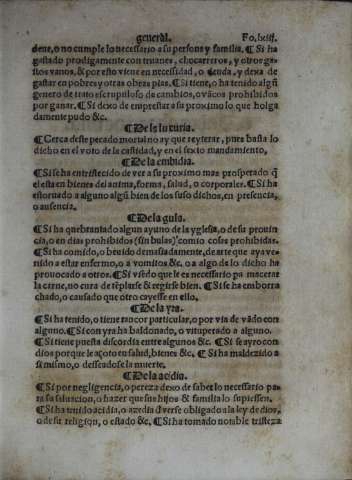 general. Fo.lxiij.
dene, o no cumple lo necessario a su persona y familia. ¶ Si ha
gastado prodigamente con truanes, chocarreros, y otros gas
tos vanos, & por esto viene en necessidad, o deuda, y dexa de
gastar en pobres y otras obras pias. ¶ Si tiene, o ha tenido algũ
genero de trato escrupuloso de cambios, o vsuras prohibidos
por ganar. ¶ Si dexo de emprestar a su proximo lo que holga
damente pudo &c.
¶ De la luxuria.
¶ Cerca deste pecado mortal no ay que reyterar, pues basta lo
dicho en el voto de la castidad, y en el sexto mandamiento,
¶ De la embidia.
¶ Si se ha entristecido de ver a su proximo mas prosperado q̃
el esta en bienes del anima, forma, salud, o corporales. ¶ Si ha
estoruado a alguno algũ bien de los suso dichos, en presencia,
o ausencia.
¶ De la gula.
¶ Si ha quebrantado algun ayuno de la yglesia, o de su prouin
cia, o en dias prohibidos (sin bulas) comio cosas prohibidas.
¶ Si ha comido, o beuido demasiadamente, de arte que aya ve-
nido a estar enfermo, o a vomitos &c. o a algo de lo dicho ha
prouocado a otros. ¶ Si vsẽdo que le es necessario pa macerar
la carne, no cura de tẽplarse & regirse bien. ¶ Si se ha emborra
chado, o causado que otro cayesse en ello.
¶ De la yra.
¶ Si ha tenido, o tiene rancor particular, o por via de vãdo con
alguno. ¶ Si con yra ha baldonado, o vituperado a alguno.
¶ Si tiene puesta discordia entre algunos &c. ¶ Si se ayro con
dios porque le açoto en salud, bienes &c. ¶ Si ha maldezido a
si mismo, o desseado se la muerte.
¶ De la acidia.
¶ Si por negligencia, o pereza dexo de saber lo necessario pa-
ra su saluacion, o hazer que sus hijos & familia lo supiessen.
¶ Si ha tenido acidia, o azedia d'verse obligado a la ley de dios,
o de su religion, o estado &c. ¶ Si ha tomado notable tristeza